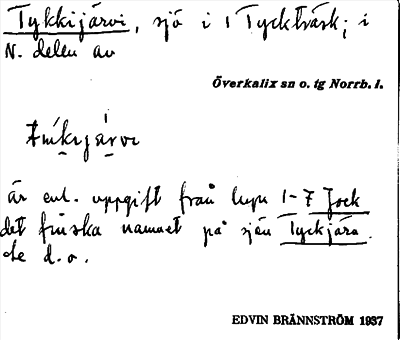 Tykkijärvi, sjö i 1 Tyckträsk; i
N. delen av
Överkalix sn o. tg Norrb. l.
är enl. uppgift från hypn 1-7 Jock
det finska namnet på sjön Tyckjärv.
de d.o.
EDVIN BRÄNNSTRÖM 1937